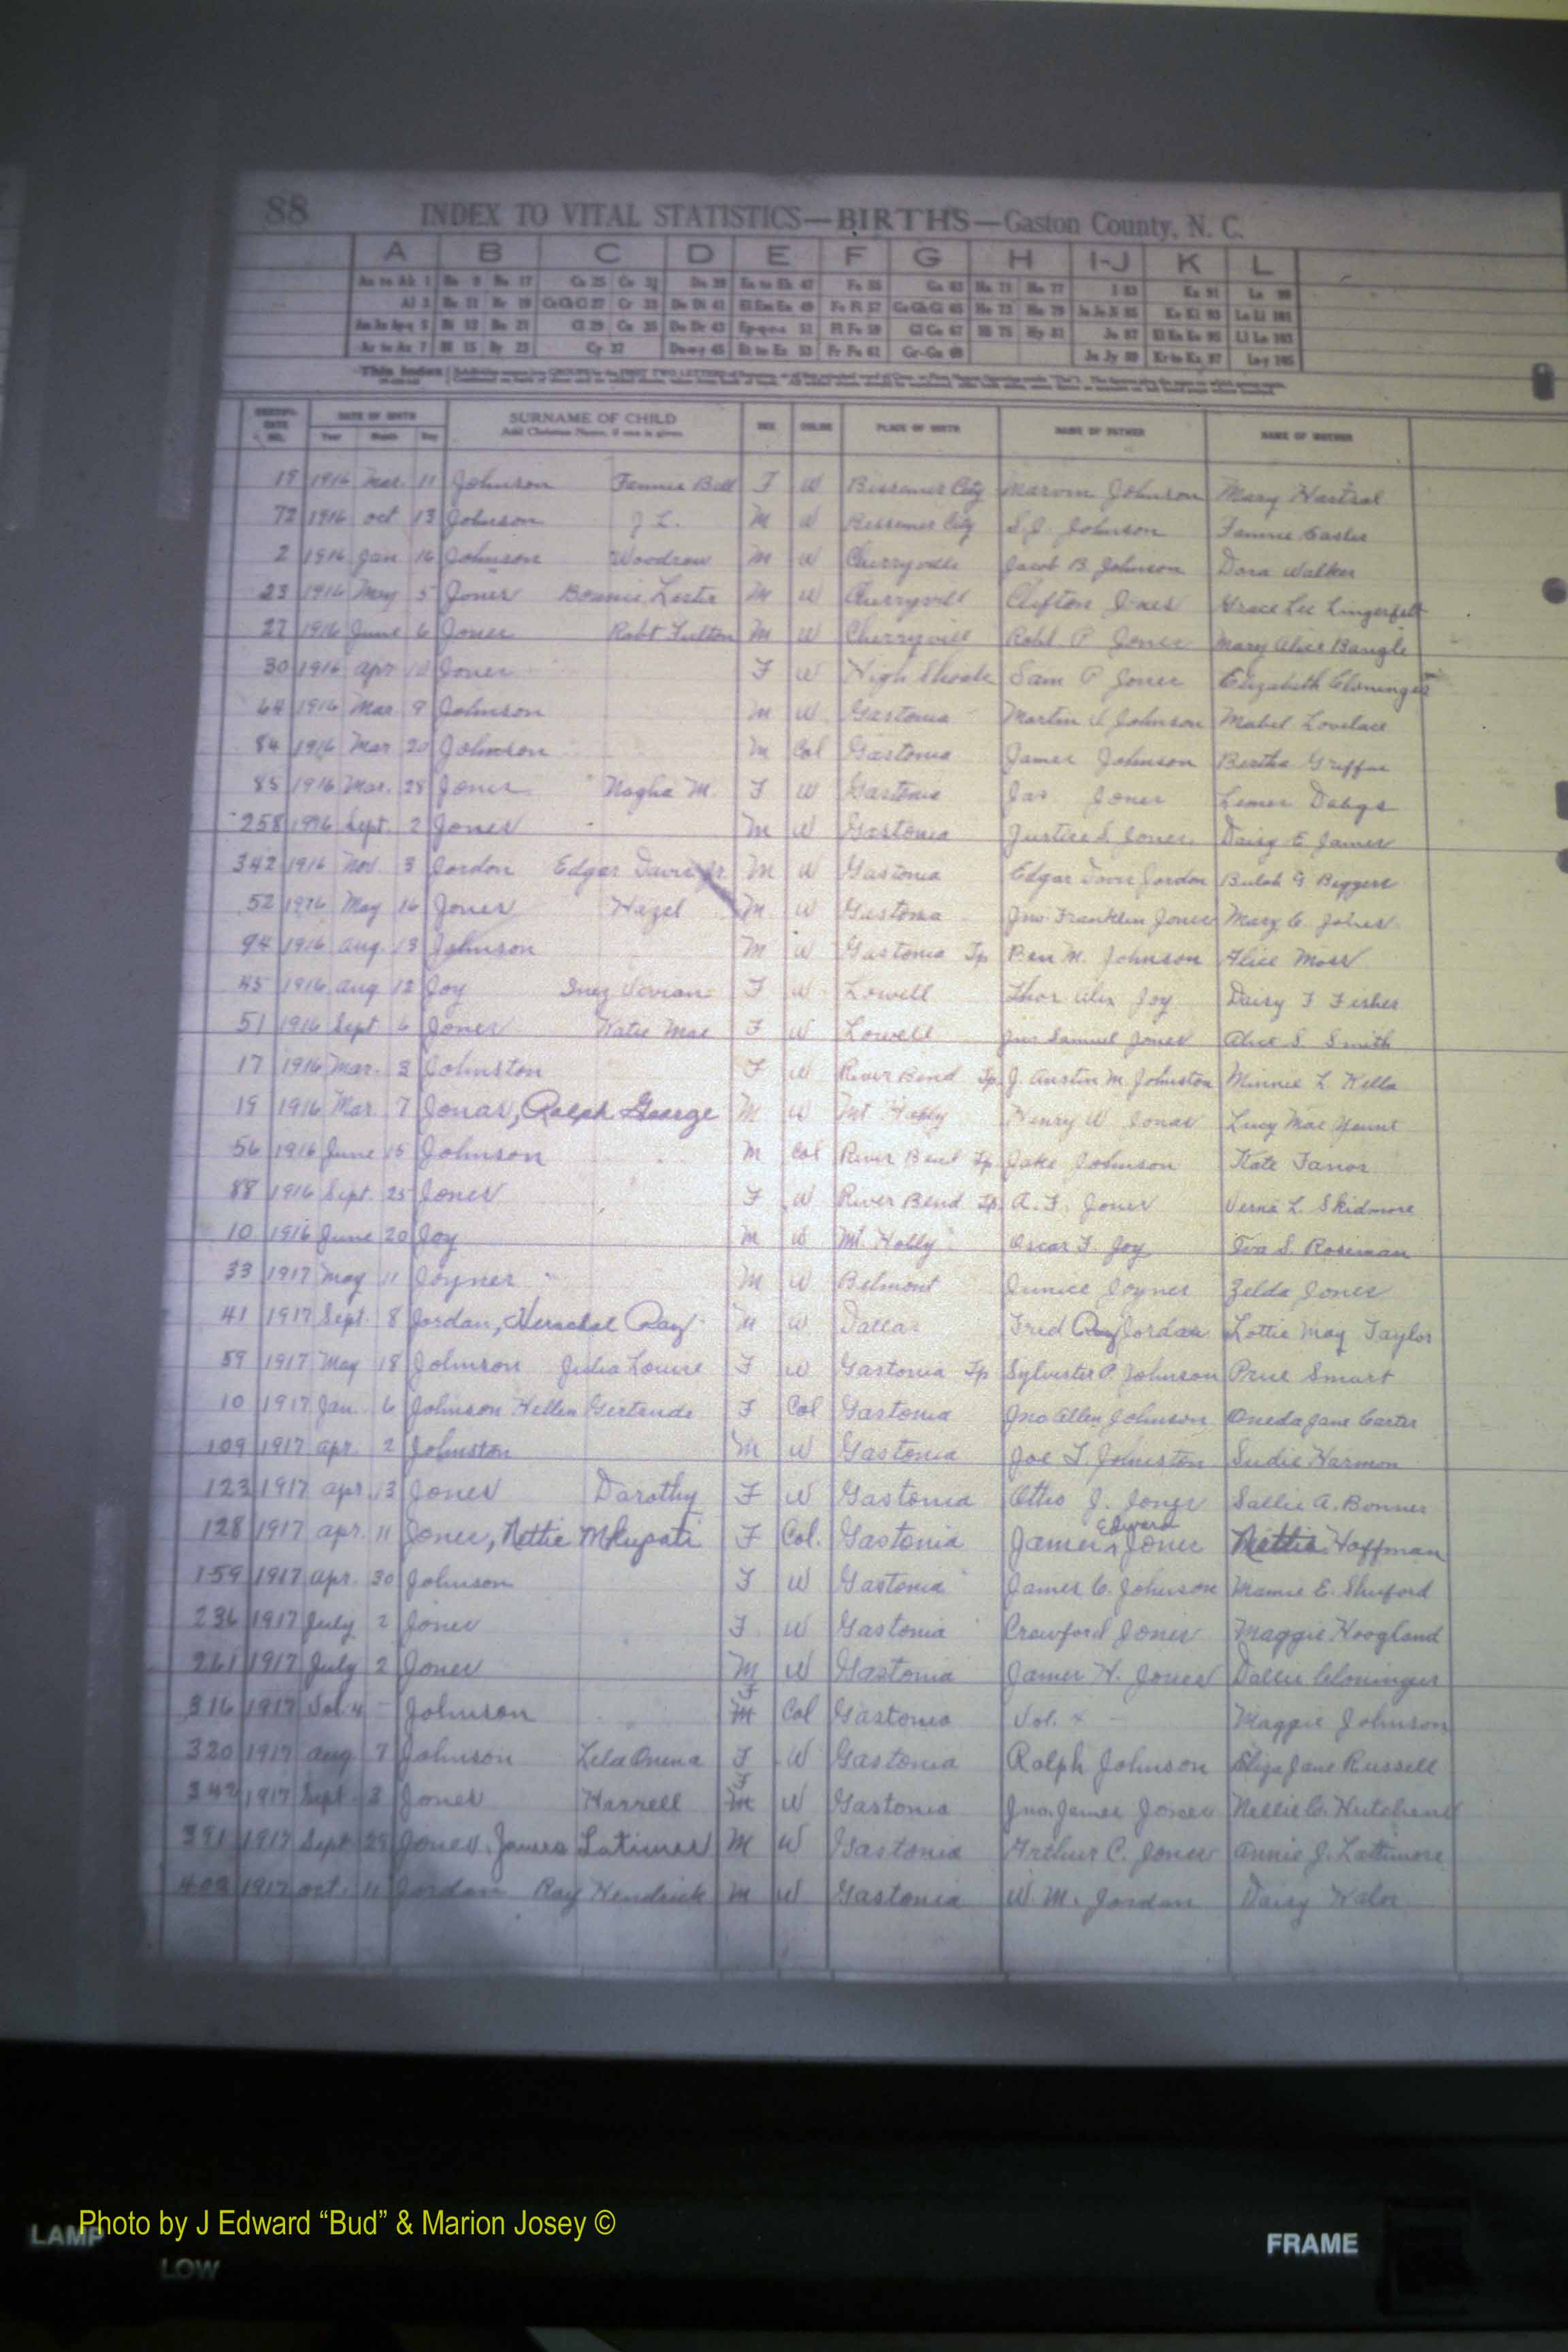 88 INDEX TO VITAL STATISTICS—BIRTHS—Gaston County, N. C.
A B C D E F G H I-J K L
This Index
DATE OF BIRTH SURNAME OF CHILD SEX COLOR PLACE OF BIRTH NAME OF FATHER NAME OF MOTHER
Year Month Day Add Christian Name, if one is given
19 1916 Mar. 11 Johnson Fannie Bell F W Bessemer City Marvin Johnson Mary
72 1916 Oct 13 Johnson J L. M W Bessemer City S.J. Johnson Fannie
2 1916 Jan 16 Johnson Woodrow M W Cherryville Jacob B. Johnson Dora Walker
23 1916 May 5 Jones Bonnie Lester M W Clifton Jones Grace Lee Lingerfelt
27 1916 June 6 Jones Robt Fulton M W Cherryville Robt. P Jones Mary Alice Bangle
30 1916 Apr 10 Jones F W High Shoals Sam P Jones Elizabeth Cloninger
64 1916 Mar 9 Johnson M W Gastonia Martin Johnson Mabel Lovelace
84 1916 Mar 20 Johnson M Col Gastonia James Johnson Bertha
85 1916 Mar. 28 Jones M. F W Gastonia Jas Jones
258 1916 Sept. 2 Jones M W Gastonia Justice S. Jones Daisy E James
342 1916 Nov. 3 Jordon Edgar Davis Jr. M W Gastonia Edgar Davis Jordon Bulah G Biggers
52 1916 May 16 Jones Hazel M W Gastonia Jno. Franklin Jones Mary C. Jones
94 1916 Aug. 13 Johnson M W Gastonia Tp Ben M. Johnson Alice Moss
45 1916 Aug 12 Joy Inez Vivian F W Lowell Thos Alex Joy Daisy F Fisher
51 1916 Sept 6 Jones Katie Mae F W Lowell Jno Samuel Jones Alice S. Smith
17 1916 Mar. 3 Johnston F W River Bend Tp. J. Austin M. Johnston Minnie L. Kella
19 1916 Mar. 7 Jonas, Ralph George M W Mt Holly Henry W Jonas Lucy Mae Yount
56 1916 June 15 Johnson M Col River Bend Tp. Jake Johnson Kate
88 1916 Sept. 25 Jones F W River Bend Tp. A. F. Jones Verna L. Skidmore
10 1916 June 20 Joy M W Mt Holly Oscar F. Joy Eva S. Roseman
33 1917 May 11 Joyner M W Belmont Junice Joyner Zelda Jones
41 1917 Sept. 8 Jordan, Herschel Ray M W Dallas Fred Ray Jordan Lottie May Taylor
59 1917 May 18 Johnson Julia Louise F W Gastonia Tp Sylvester P. Johnson Prue Smart
10 1917 Jan. 6 Johnson Hellen Gertrude F Col Gastonia Jno Allen Johnson Oneda Jane Carter
109 1917 Apr. 2 Johnston M W Gastonia Joe L. Johnston Sudie Harmon
123 1917 Apr. 13 Jones Darothy F W Gastonia Otho J. Jones Sallie A. Bonner
128 1917 Apr. 11 Jones, Nettie F Col. Gastonia James Edward Jones Hoffman
159 1917 Apr. 30 Johnson F W Gastonia James C. Johnson Mamie E. Shuford
236 1917 July 2 Jones F W Gastonia Crawford Jones Maggie Hoogland
261 1917 July 2 Jones M W Gastonia James H. Jones Dallie Cloninger
316 1917 Vol. 4 - Johnson F Col Gastonia Vol. 4 - Maggie Johnson
320 1917 Aug 7 Johnson Lela F W Gastonia Ralph Johnson Eliza Jane Russell
342 1917 Sept. 3 Jones Harrell F W Gastonia Jno. James Jones Nellie C. Hutchens
391 1917 Sept 29 Jones, James Latimer M W Gastonia Arthur C. Jones Annie J. Lattimore
402 1917 Oct. 11 Jordan Ray Hendrick M W Gastonia W. M. Jordan Daisy
Photo by J Edward “Bud” & Marion Josey ©
LAMP
LOW
FRAME